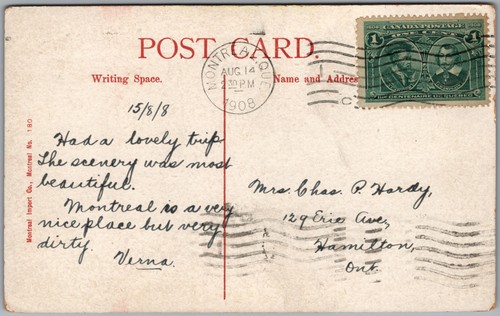 POST CARD.
Writing Space.
Name and Addre
MONTREAL, QUE.
AUG. 14
2:30 P.M.
1908
CANADA POSTAGE
1 1
15/8/8
Had a lovely trip.
The scenery was most
beautiful.
Montreal is a very
nice place but very
dirty.
Verna.
Mrs. Chas. P. Hardy,
129 Erie Ave,
Hamilton,
Ont.
Montreal Import Co., Montreal No. 180